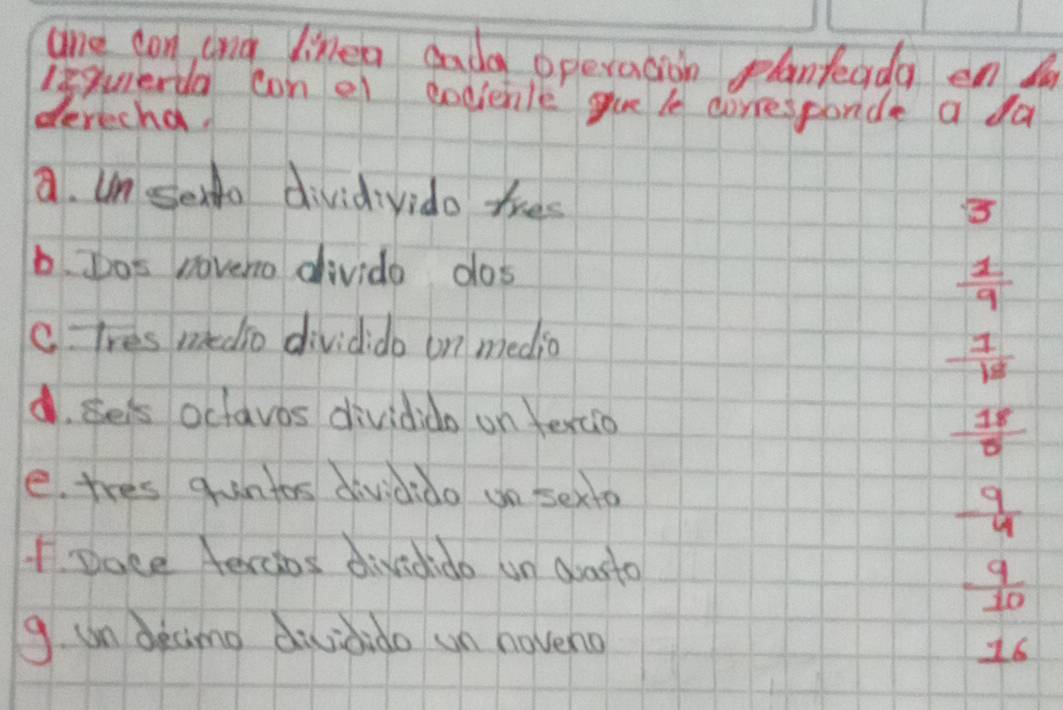 une con una linea cada operación planteada en la
izquierda con el cociente que le corresponde a la
derecha.
a. un sexto dividivido tres 3
b. Dos noveno divido dos 1/9
c. Tres medio dividido un medio 1/18
d. seis octavos dividido un tercio 18/8
e. tres quintos dividido un sexto 9/4
f. Doce tercios dividido un cuarto 9/10
g. un décimo dividido un noveno 16